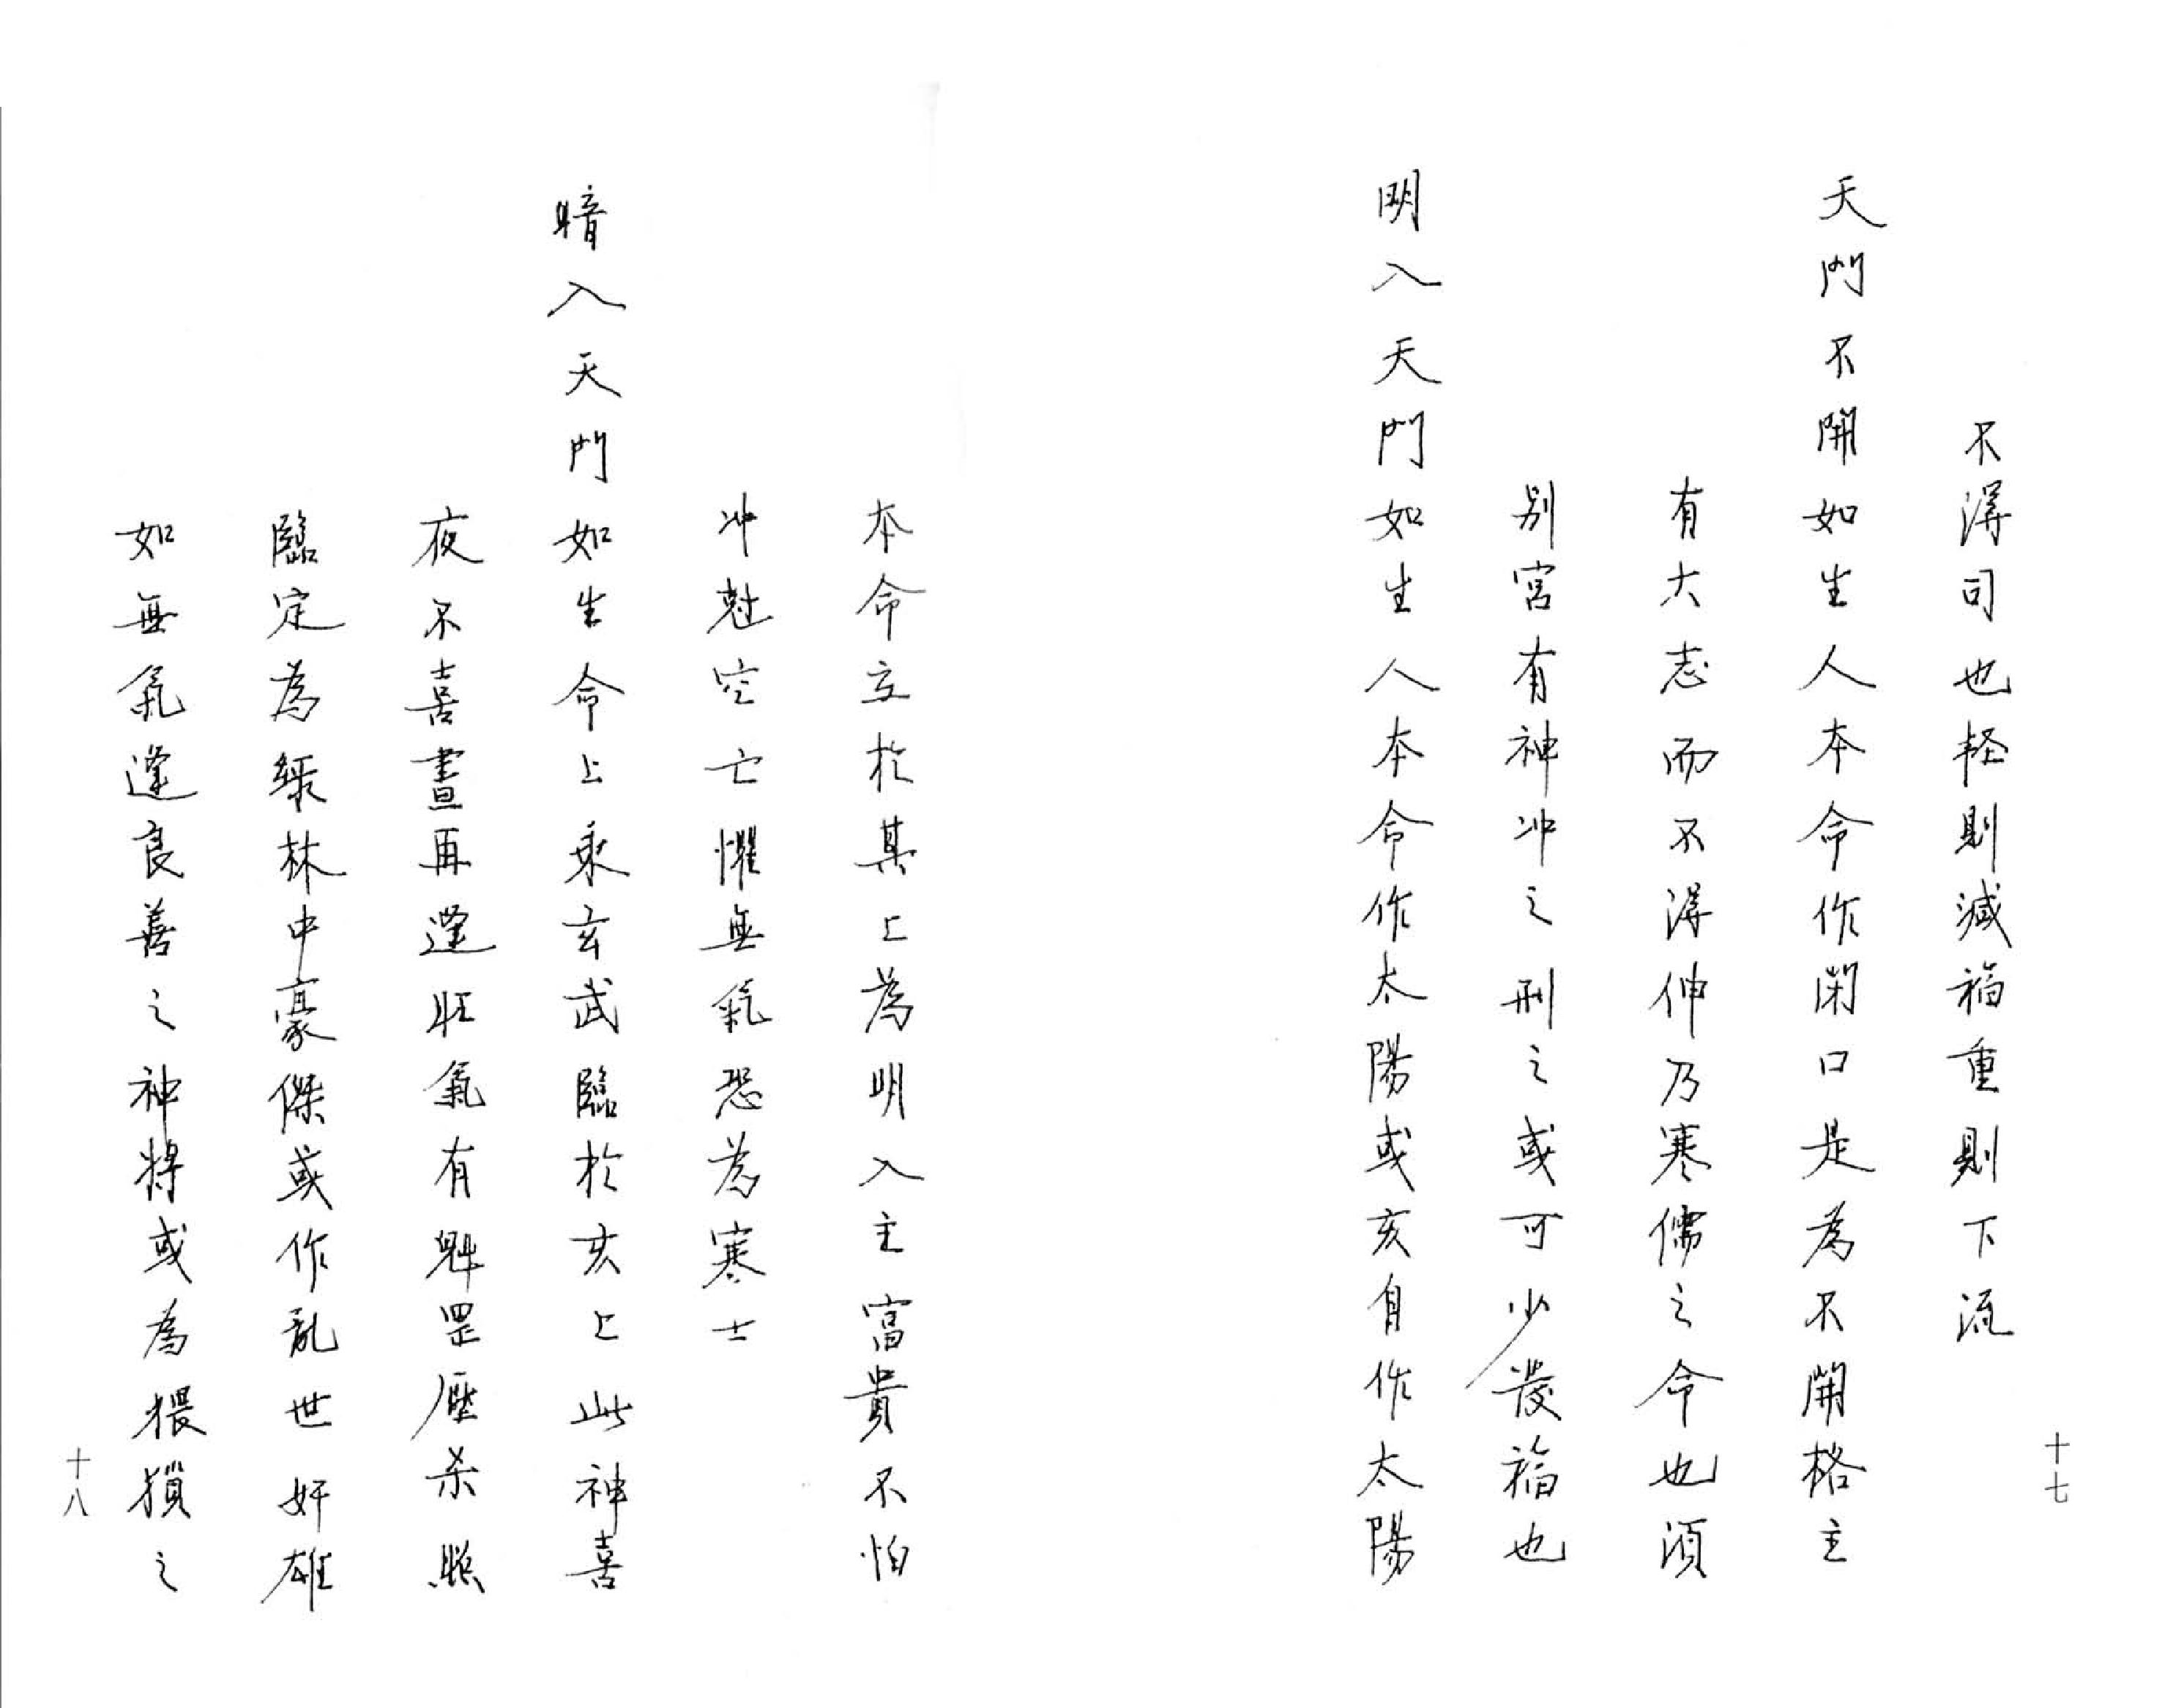 不得司也軽則減福重則下流
天門不開如生人本命作閉口是為不開格主
有大志而不得伸乃寒儒之命也須
别宮有神冲之刑之或可少發福也
明入天門如生人本命作太陽或亥自作太陽
十七
本命立於其上為明入主富貴不怕
冲尅空亡懼無氣恐為寒士
暗入天門如生命上乘玄武臨於亥上此神喜
夜不喜晝再逢旺氣有魁罡壓杀照
臨定為綠林中豪傑或作亂世奸雄
如無氣逢良善之神將或為猥𤠔之
十八